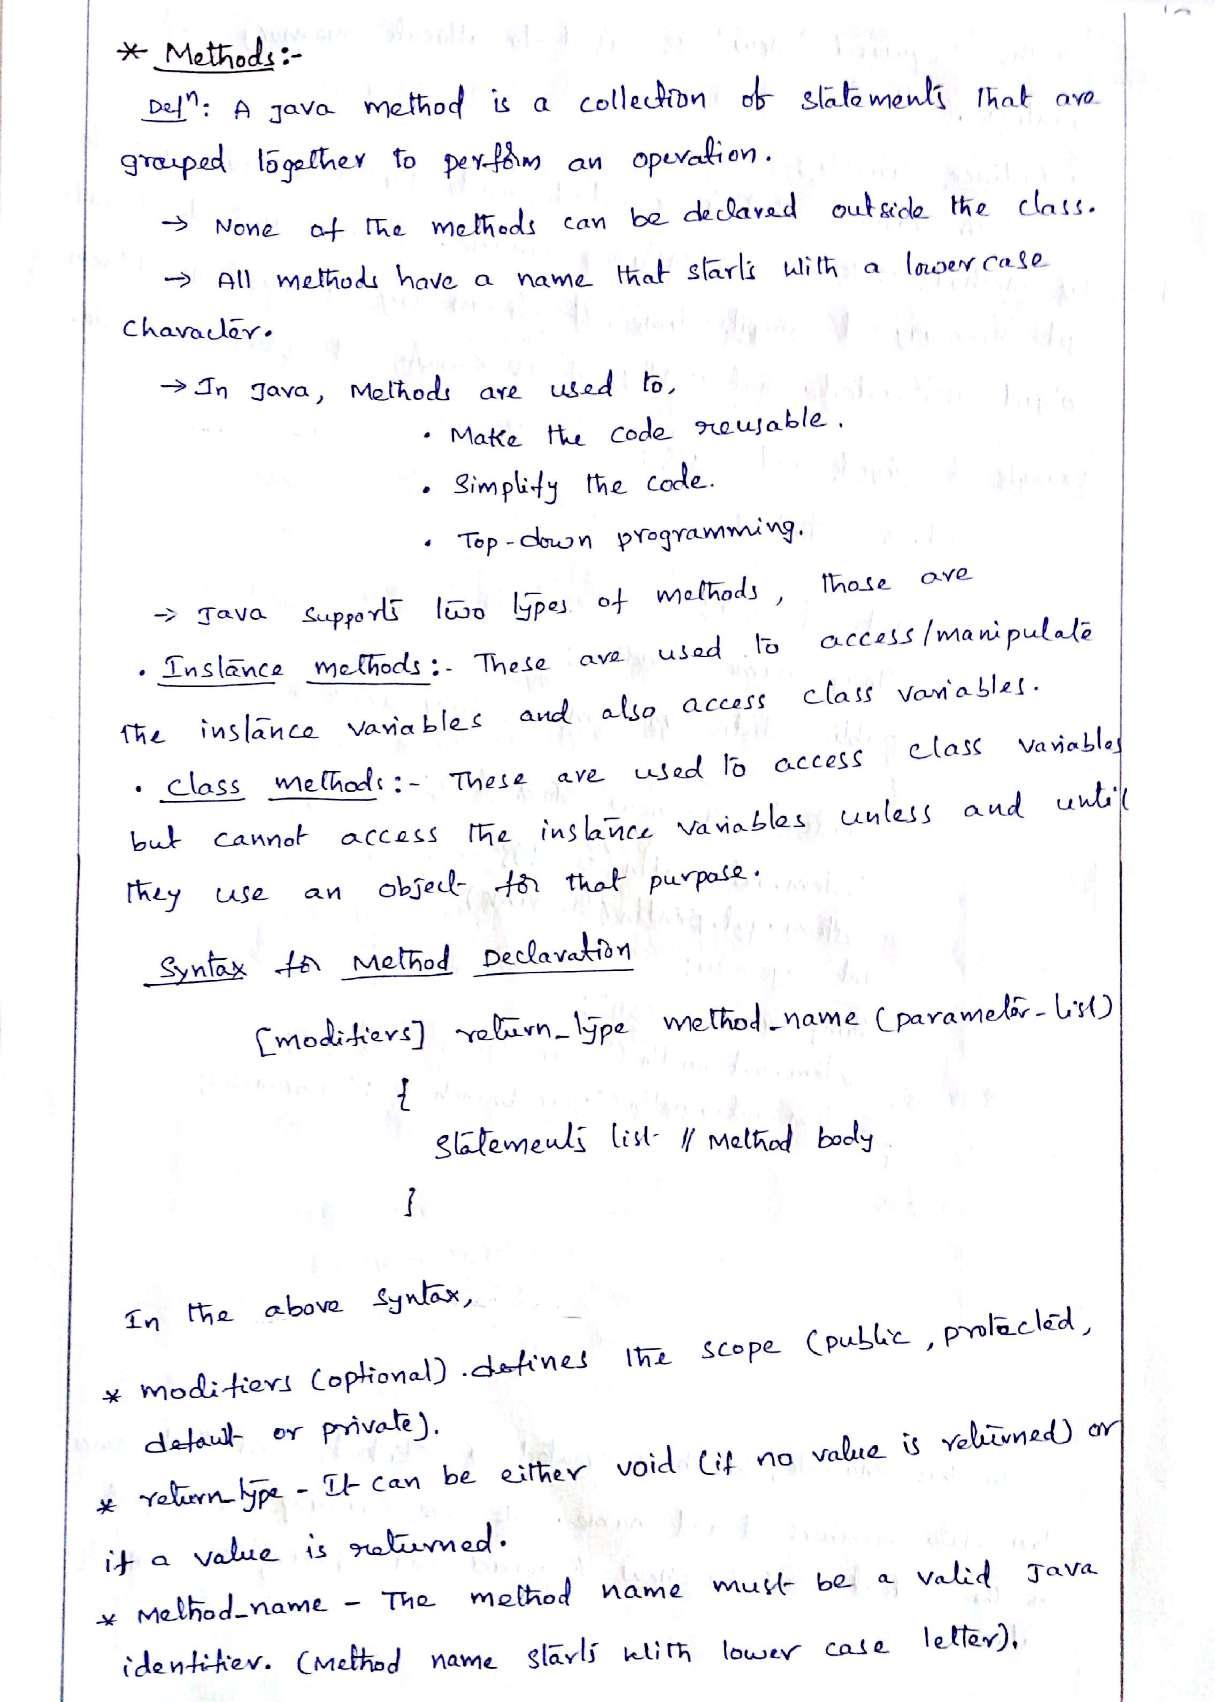 * Methods:-
Defⁿ: A Java method is a collection of statements that are
grouped together to perform an operation.
→ None of the methods can be declared outside the class.
→ All methods have a name that starts with a lower case
character.
→ In Java, Methods are used to,
• Make the code reusable.
• Simplify the code.
• Top-down programming.
→ Java supports two types of methods, those are
• Instance methods:- These are used to access/manipulate
the instance variables and also access class variables.
• class methods:- These are used to access class variables
but cannot access the instance variables unless and until
they use an object for that purpose.
Syntax for Method Declaration
[modifiers] return_type method_name (parameter-list)
{
Statements list // Method body
}
In the above syntax,
* modifiers (optional). defines the scope (public, protected,
default or private).
* return_type - It can be either void (if no value is returned) or
if a value is returned.
* Method_name - The method name must be a valid Java
identifier. (Method name starts with lower case letter).